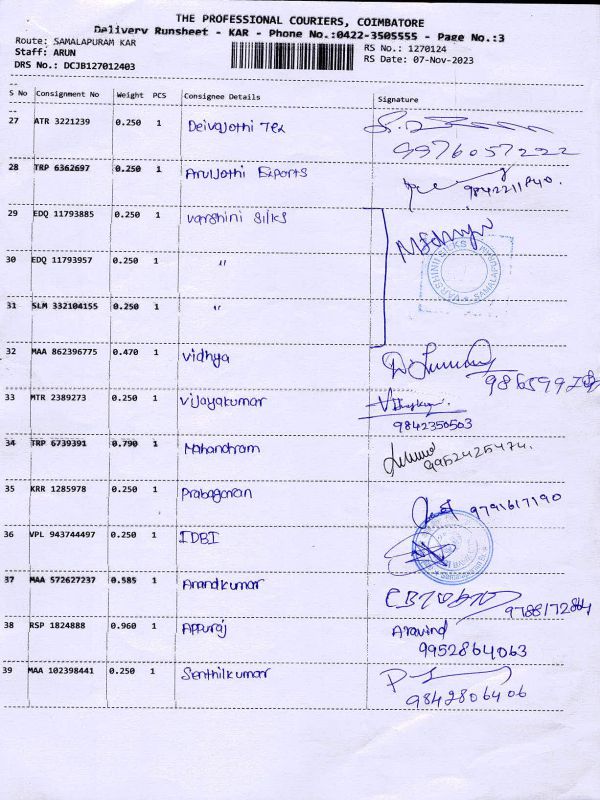 THE PROFESSIONAL COURIERS, COIMBATORE
Delivery Runsheet - KAR - Phone No.:0422-3505555 - Page No.:3
Route: SAMALAPURAM KAR RS No.: 1270124
Staff: ARUN RS Date: 07-Nov-2023
DRS No.: DCJB127012403
S No Consignment No Weight PCS Consignee Details Signature
27 ATR 3221239 0.250 1 Deivajothi Tex
9976057222
28 TRP 6362697 0.250 1 Aruljothi Exports 9842211840.
29 EDQ 11793885 0.250 1 varshini silks
VARSHINI SILKS
SAMALAPURAM
30 EDQ 11793957 0.250 1 "
31 SLM 332104155 0.250 1 "
32 MAA 862396775 0.470 1 vidhya
33 MTR 2389273 0.250 1 vijayakumar
9842350503
34 TRP 6739391 0.790 1 Mahandram 9952425474.
35 KRR 1285978 0.250 1 Prabagaran 9791617190
36 VPL 943744497 0.250 1 IDBI
37 MAA 572627237 0.585 1 Anandkumar 9788172864
38 RSP 1824888 0.960 1 Appuraj Aravind
9952864063
39 MAA 102398441 0.250 1 Senthilkumar
9842806406